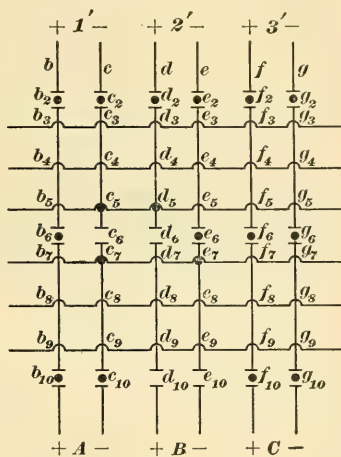 + 1′ − + 2′ − + 3′ −
b c d e f g
b2 c2 d2 e2 f2 g2
b3 c3 d3 e3 f3 g3
b4 c4 d4 e4 f4 g4
b5 c5 d5 e5 f5 g5
b6 c6 d6 e6 f6 g6
b7 c7 d7 e7 f7 g7
b8 c8 d8 e8 f8 g8
b9 c9 d9 e9 f9 g9
b10 c10 d10 e10 f10 g10
+ A − + B − + C −